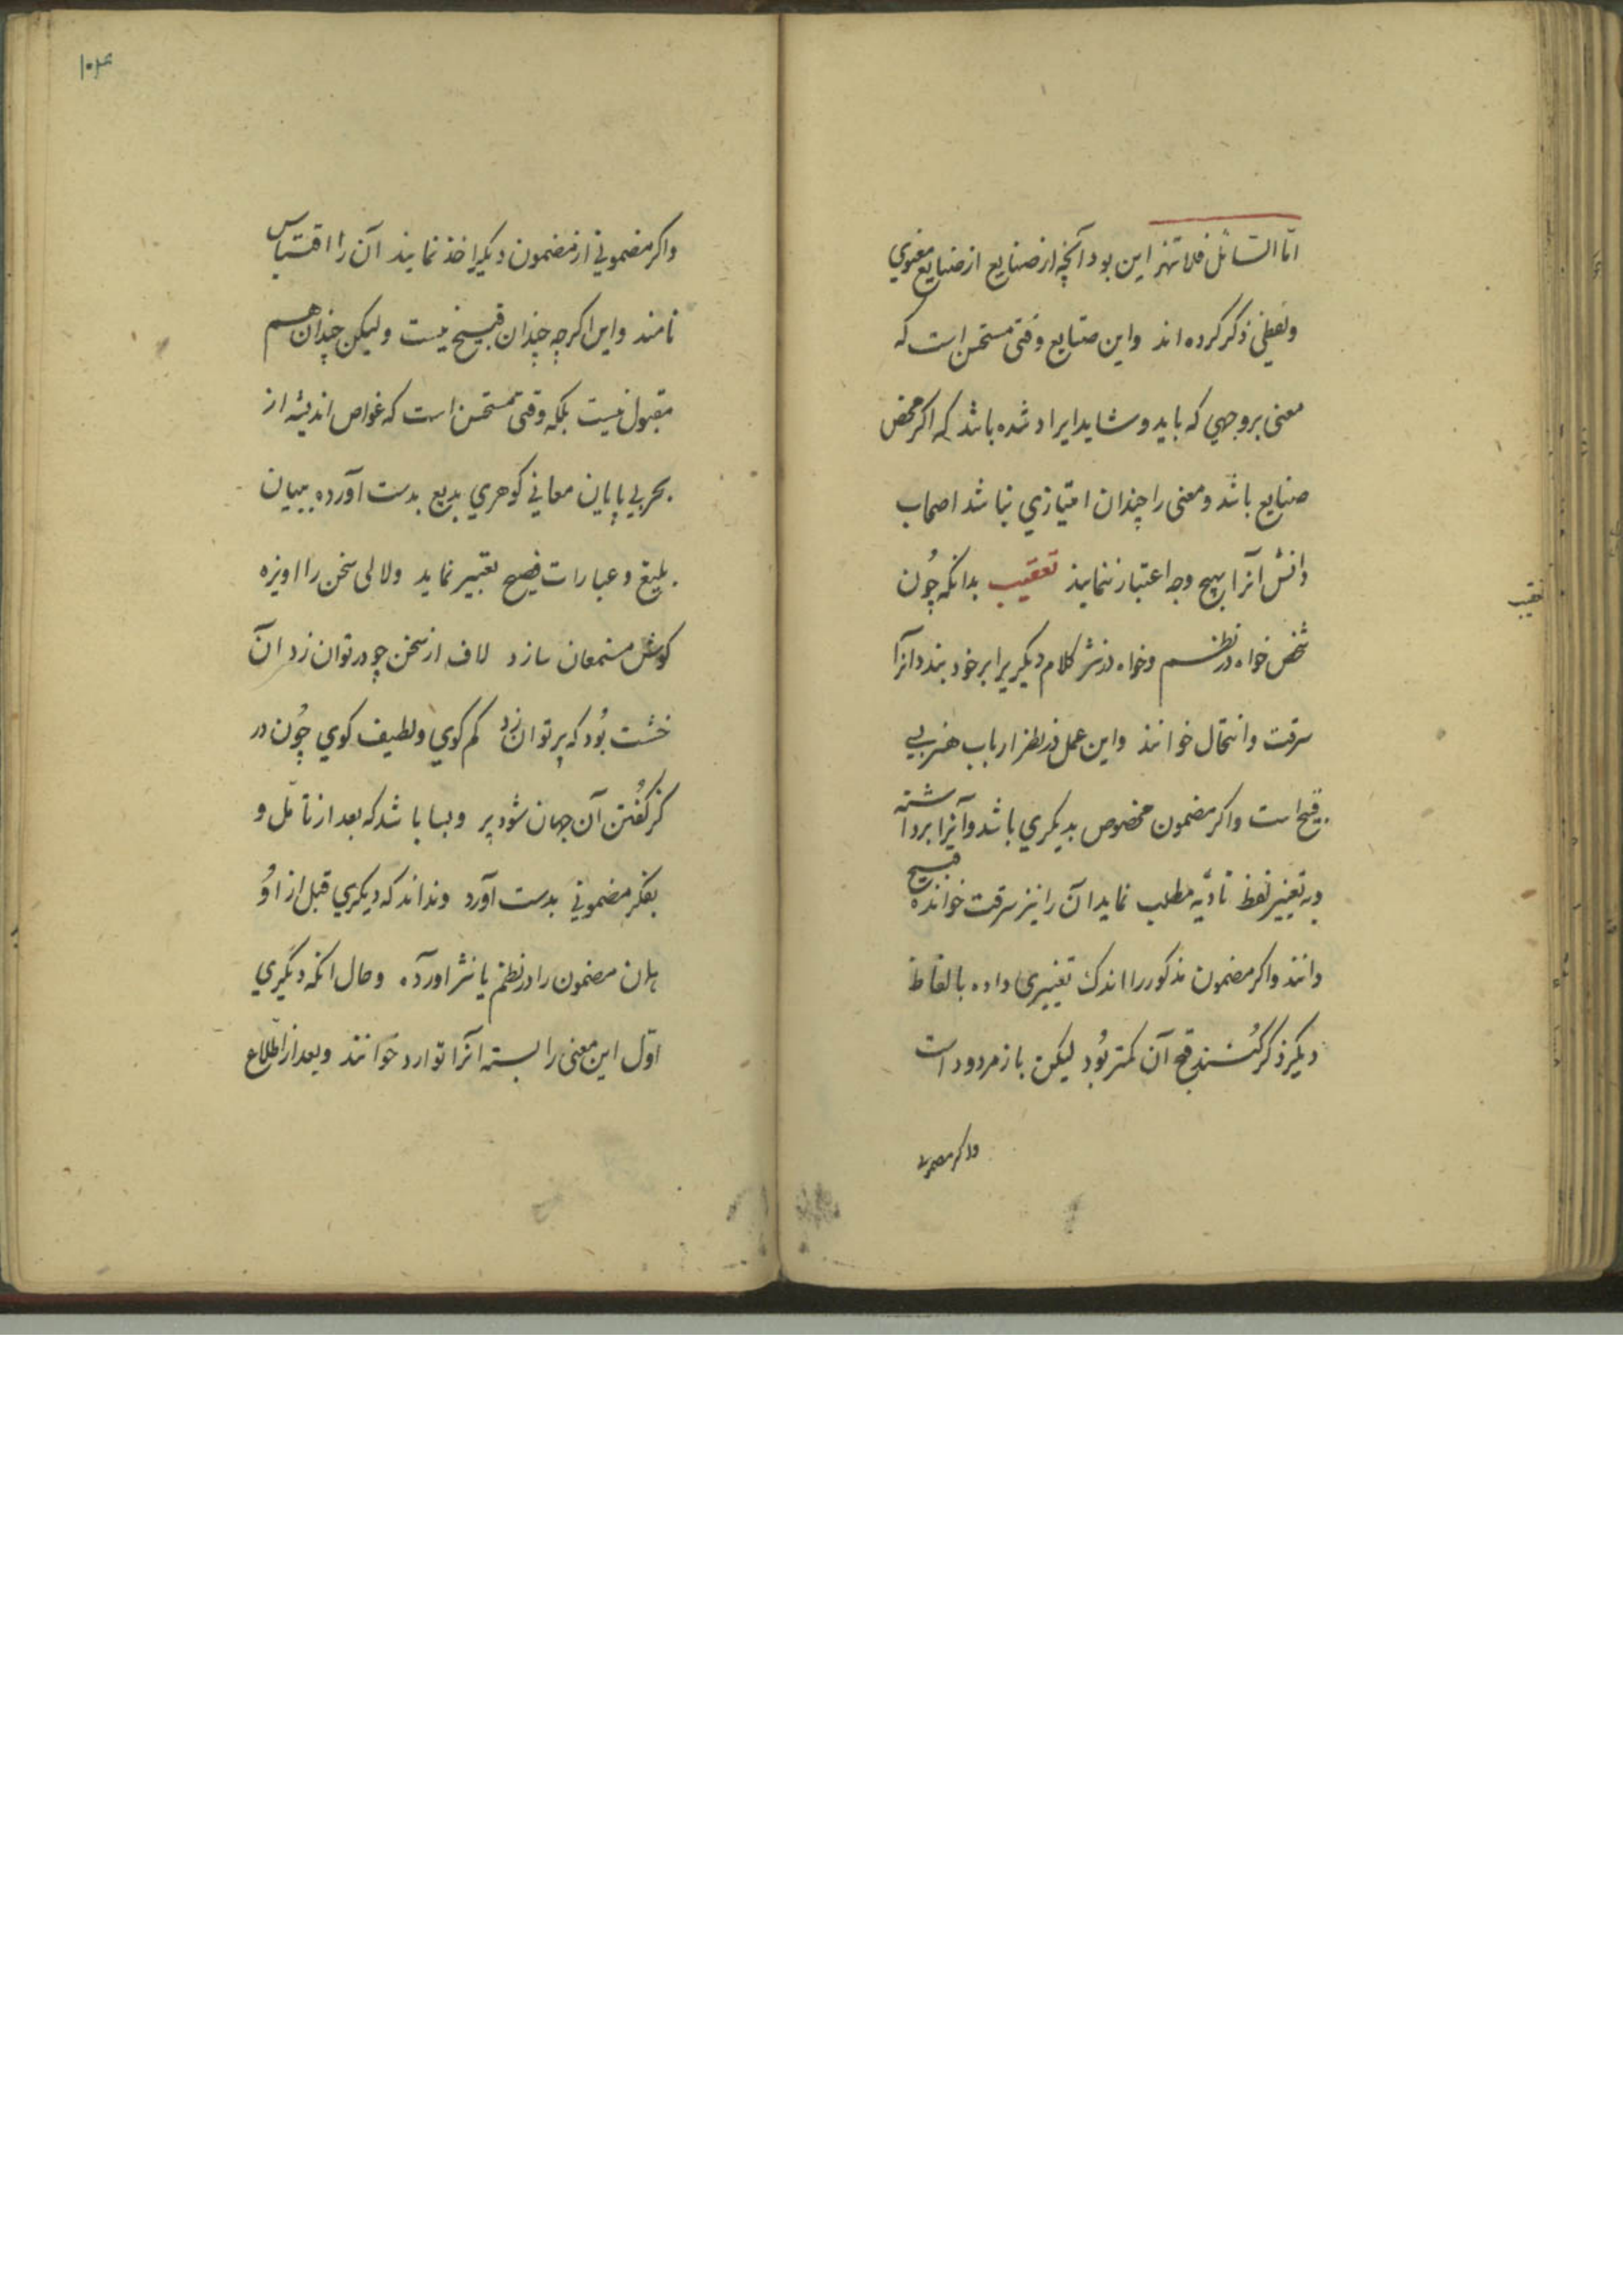 امّا السّائل فلا تنهر این بود آنچه از صنایع از صنایع معنوي
ولفظی ذکر کرده اند واین صنایع وقتی مستحسن است که
معنی بروجهي که باید وشاید ایراد شده باشد که اکر محض
صنایع باشد ومعنی را چندان امتیازي نباشد اصحاب
دانش آنرا بهیچ وجه اعتبار ننمایند تعقیب بدانکه چُون
تعقیب
شخص خواه در نظم وخواه در نثر کلام دیکریرا بر خود بندد آنرا
سرقت وانتحال خوانند واین عمل در نظر ارباب هنر بی
قبیح است واکر مضمون مخصوص بدیکري باشد وآنرا برداشته
وبه تغییر لفظ تأدیه مطلب نماید آن را نیز سرقت خوانده قبیح
دانند واکر مضمون مذکور را اندک تغییری داده بالفاظ
دیکر ذکر کنند قبح آن کمتر بُود لیکن باز مردود است
واکر مضمونی
۱۰۴
واکر مضمونی از مضمون دیکر اخذ نمایند آن را اقتباس
نامند واین اکرچه چندان قبیح نیست ولیکن چندان هم
مقبول نیست بلکه وقتی مستحسن است که غواص اندیشه از
بحر بی پایان معانی کوهري بدیع بدست آورده ببیان
بلیغ وعبارات فصیح تعبیر نماید ولالی سخن را اویزه
کوش مستمعان سازد لاف از سخن چو در توان زد آن
خشت بُود که پر توان زد کم کوي ولطیف کوي چُون در
کز کُفتن آن جهان شود پر وبسا باشد که بعد از تأمّل و
بفکر مضمونی بدست آورد ونداند که دیکري قبل از اوُ
همان مضمون را در نظم یا نثر اورده وحال انکه دیکَري
اوّل این معنی را بسته آنرا توارد خوانند وبعد از اطّلاع